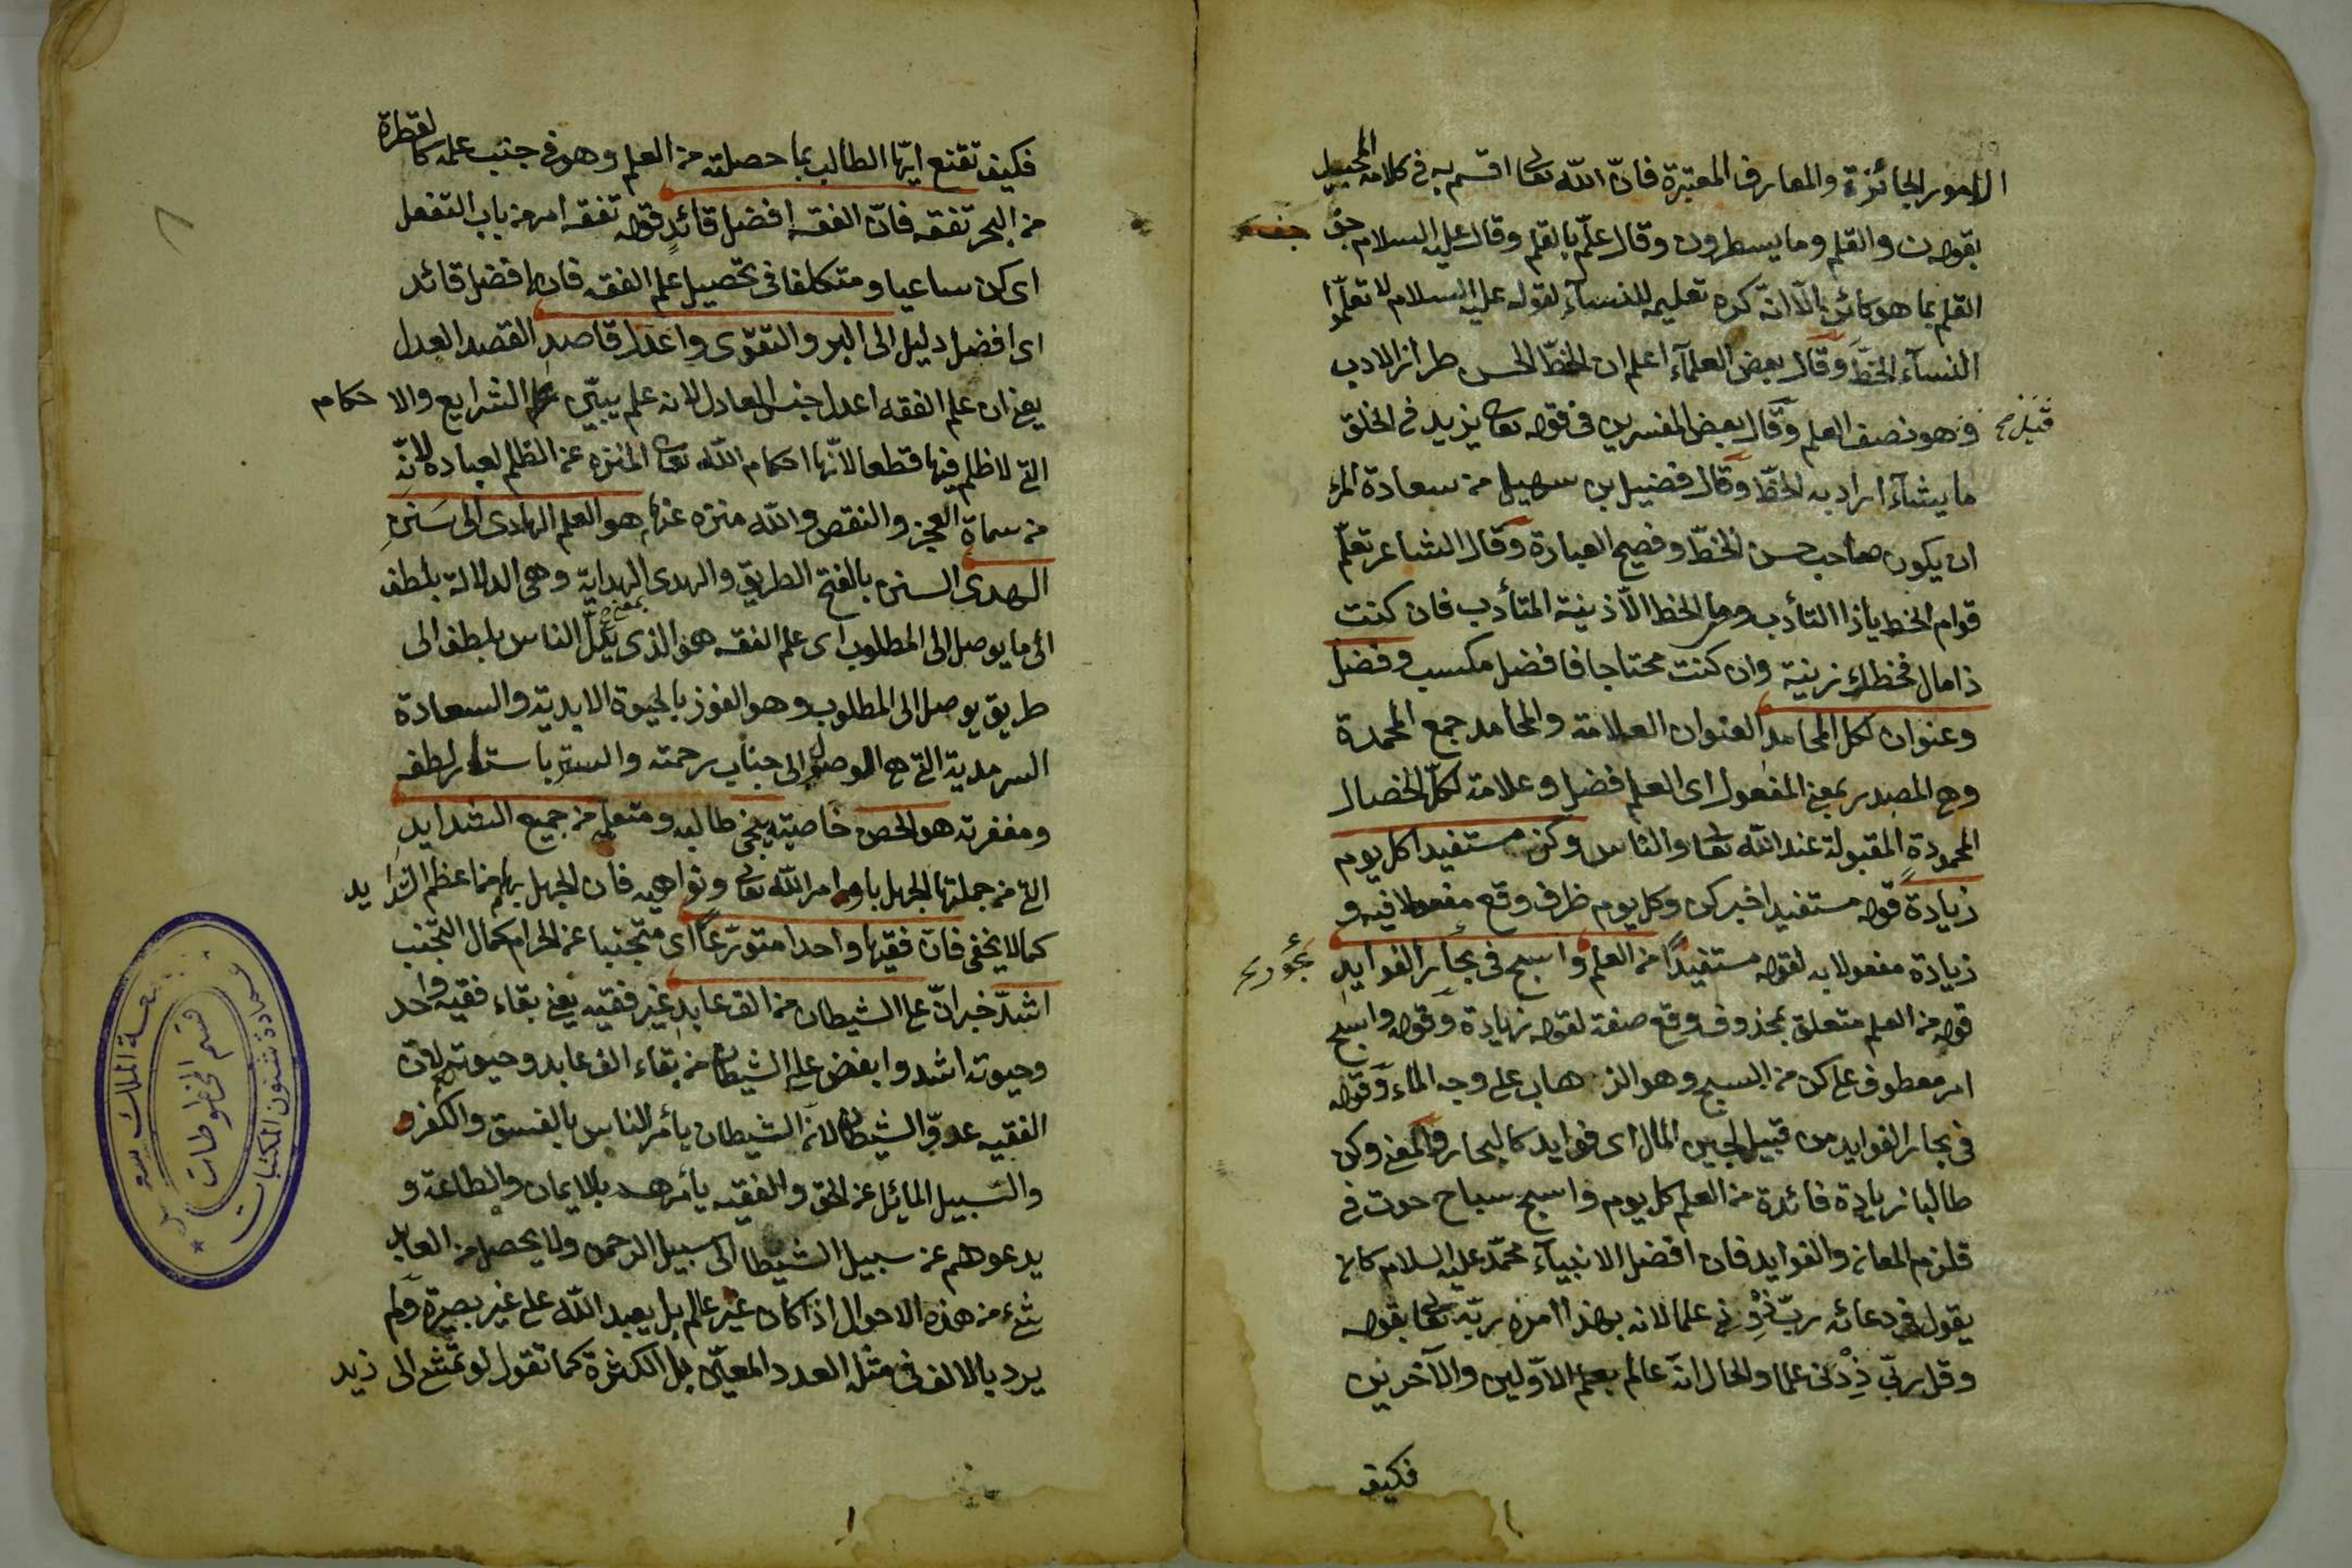 الامور الجائزة والمعارف المعتبرة فانّ الله تعالى اقسم به فى كلامه الجميل
بقوله ن والقلم وما يسطرون وقال علّم بالقلم وقال عليه السلام جف
القلم بما هو كائن الّا انّه كره تعليمه للنسآء لقوله عليه السلام لا تعلّموا
النسآء الخطّ وقال بعض العلمآء اعلم ان الخطّ الحسن طراز الادب
فهو نصف العلم وقال بعض المفسرين فى قوله تعالى يزيد فى الخلق
ما يشآء اراد به الخطّ وقال فضيل بن سهيل من سعادة المرء
ان يكون صاحب حسن الخطّ وفصيح العبارة وقال الشاعر تعلّم
قوام الخط ياذا التأدب وما الخط الّا زينة المتأدب فان كنت
ذا مال فخطك زينة وان كنت محتاجا فافضل مكسب وفضل
وعنوان لكل المحامد العنوان العلامة والمحامد جمع المحمدة
وهى المصدر بمعنى المفعول اى العلم فضل وعلامة لكلّ الخصال
المحمودة المقبولة عند الله تعالى والناس وكن مستفيدا كل يوم
زيادة قوله مستفيدا خبر كن وكل يوم ظرف وقع مفعولا فيه و
زيادة مفعولا به لقوله مستفيدًا من العلم واسبح فى بحار الفوايد
بحور
قوله من العلم متعلق بمحذوف وقع صفة لقوله زيادة وقوله واسبح
امر معطوف على كن من السبح وهو الذهاب على وجه الماء وقوله
فى بحار الفوايد من قبيل لجين المال اى فوايد كالبحار والمعنى وكن
طالبا زيادة فائدة من العلم كل يوم واسبح سباح حوت فى
قلزم المعانى والفوايد فان افضل الانبيآء محمّد عليه السلام كان
يقول فى دعائه ربّ زِدْنى علما لانه بهذا امره ربّه تعالى بقوله
وقل ربّ زِدْنى علما والحال انّه عالم بعلم الاوّلين والآخرين
فكيف
فكيف تقنع ايّها الطالب بما حصلته من العلم وهو فى جنب علمه كالقطرة
من البحر تفقه فانّ الفقه افضل قائدٍ قوله تفقه امر من باب التفعل
اى كن ساعيا ومتكلفا فى تحصيل علم الفقه فانه افضل قائد
اى افضل دليل الى البر والتقوى واعدل قاصدِ القصد العدل
يعنى ان علم الفقه اعدل جنس العادل لانه علم يبيّن علم الشرايع والاحكام
التى لا ظلم فيها قطعا لانّها احكام الله تعالى المنزه عن الظلم لعباده لانّه
من سماة العجز والنقص والله منزه عنها هو العلم الهادى الى سَنَنِ
الهدى السنن بالفتح الطريق والهدى الهداية وهى الدلالة بلطف
الى ما يوصل الى المطلوب اى علم الفقه هو الذى يدلّ الناس بلطف الى
طريق يوصل الى المطلوب وهو الفوز بالحيوة الابدية والسعادة
السرمدية التى هى الوصول الى جناب رحمته والستر باستار لطفه
ومغفرته هو الحصن خاصيته ينجى طالبه ومتعلمه من جميع الشدايدِ
التى من جملتها الجهل باوامر الله تعالى ونواهيه فان الجهل بهم من اعظم الشدايد
كما لا يخفى فانّ فقيها واحدا متورّعًا اى متجنبا عن الحرام كمال التجّنب
اشدّ خبر انّ على الشيطان من الف عابدٍ غير فقيه يعنى بقاء فقيه واحد
وحيوته اشد وابغض على الشيطان من بقاء الف عابد وحيوته لانّ
الفقيه عدوّ الشيطان لانّ الشيطان يأمر الناس بالفسق والكفر
والسّبيل المائل عن الحق والفقيه يأمرهم بالايمان والطاعة و
يدعوهم عن سبيل الشيطان الى سبيل الرحمن ولا يحصل من العابد
شىء من هذه الاحوال اذا كان غير عالم بل يعبد الله على غير بصيرة ولم
يرد بالالف فى مثله العدد المعيّن بل الكثرة كما تقول لو تمشع الى زيد
عمادة شئون المكتبات
قسم المخطوطات
جامعة الملك سعود